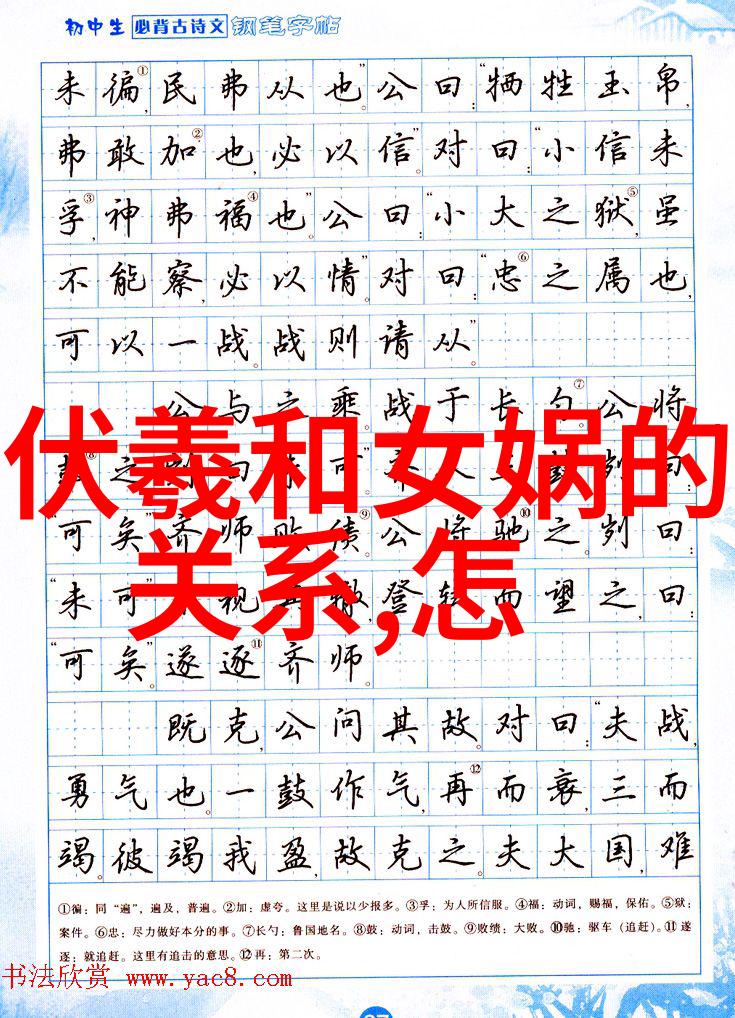 初中生 必背古诗文 钢笔字帖
未徧①,民弗从也。”公曰:“牺牲玉帛,
弗敢加②也,必以信。”对曰:“小信未
孚③,神弗福④也。”公曰:“小大之狱⑤,虽
不能察,必以情。”对曰:“忠⑥之属也,
可以一战。战则请从。”
公与之乘。战于长勺⑦。公将
伏羲和女娲的
鼓⑧之
“可矣。”齐师败绩⑨。公将驰⑩之。刿曰:
关系,怎
“未可。”视登轼而望之,曰:
“可矣。”遂逐⑪齐师。
既克,公问其故。对曰:“夫战,
勇气也。一鼓作气,再⑫而衰,三而
竭。彼竭我盈,故克之。夫大国,难
①徧:同“遍”,遍及,普遍。②加:虚夸。这里是说以少报多。③孚:为人所信服。④福:动词,赐福,保佑。⑤狱:
案件。⑥忠:尽力做好本分的事。⑦长勺:鲁国地名。⑧鼓:动词,击鼓。⑨败绩:大败。⑩驰:驱车(追赶)。⑪遂
逐:就追赶。这里有追击的意思。⑫再:第二次。
书法欣赏 www.yac8.com